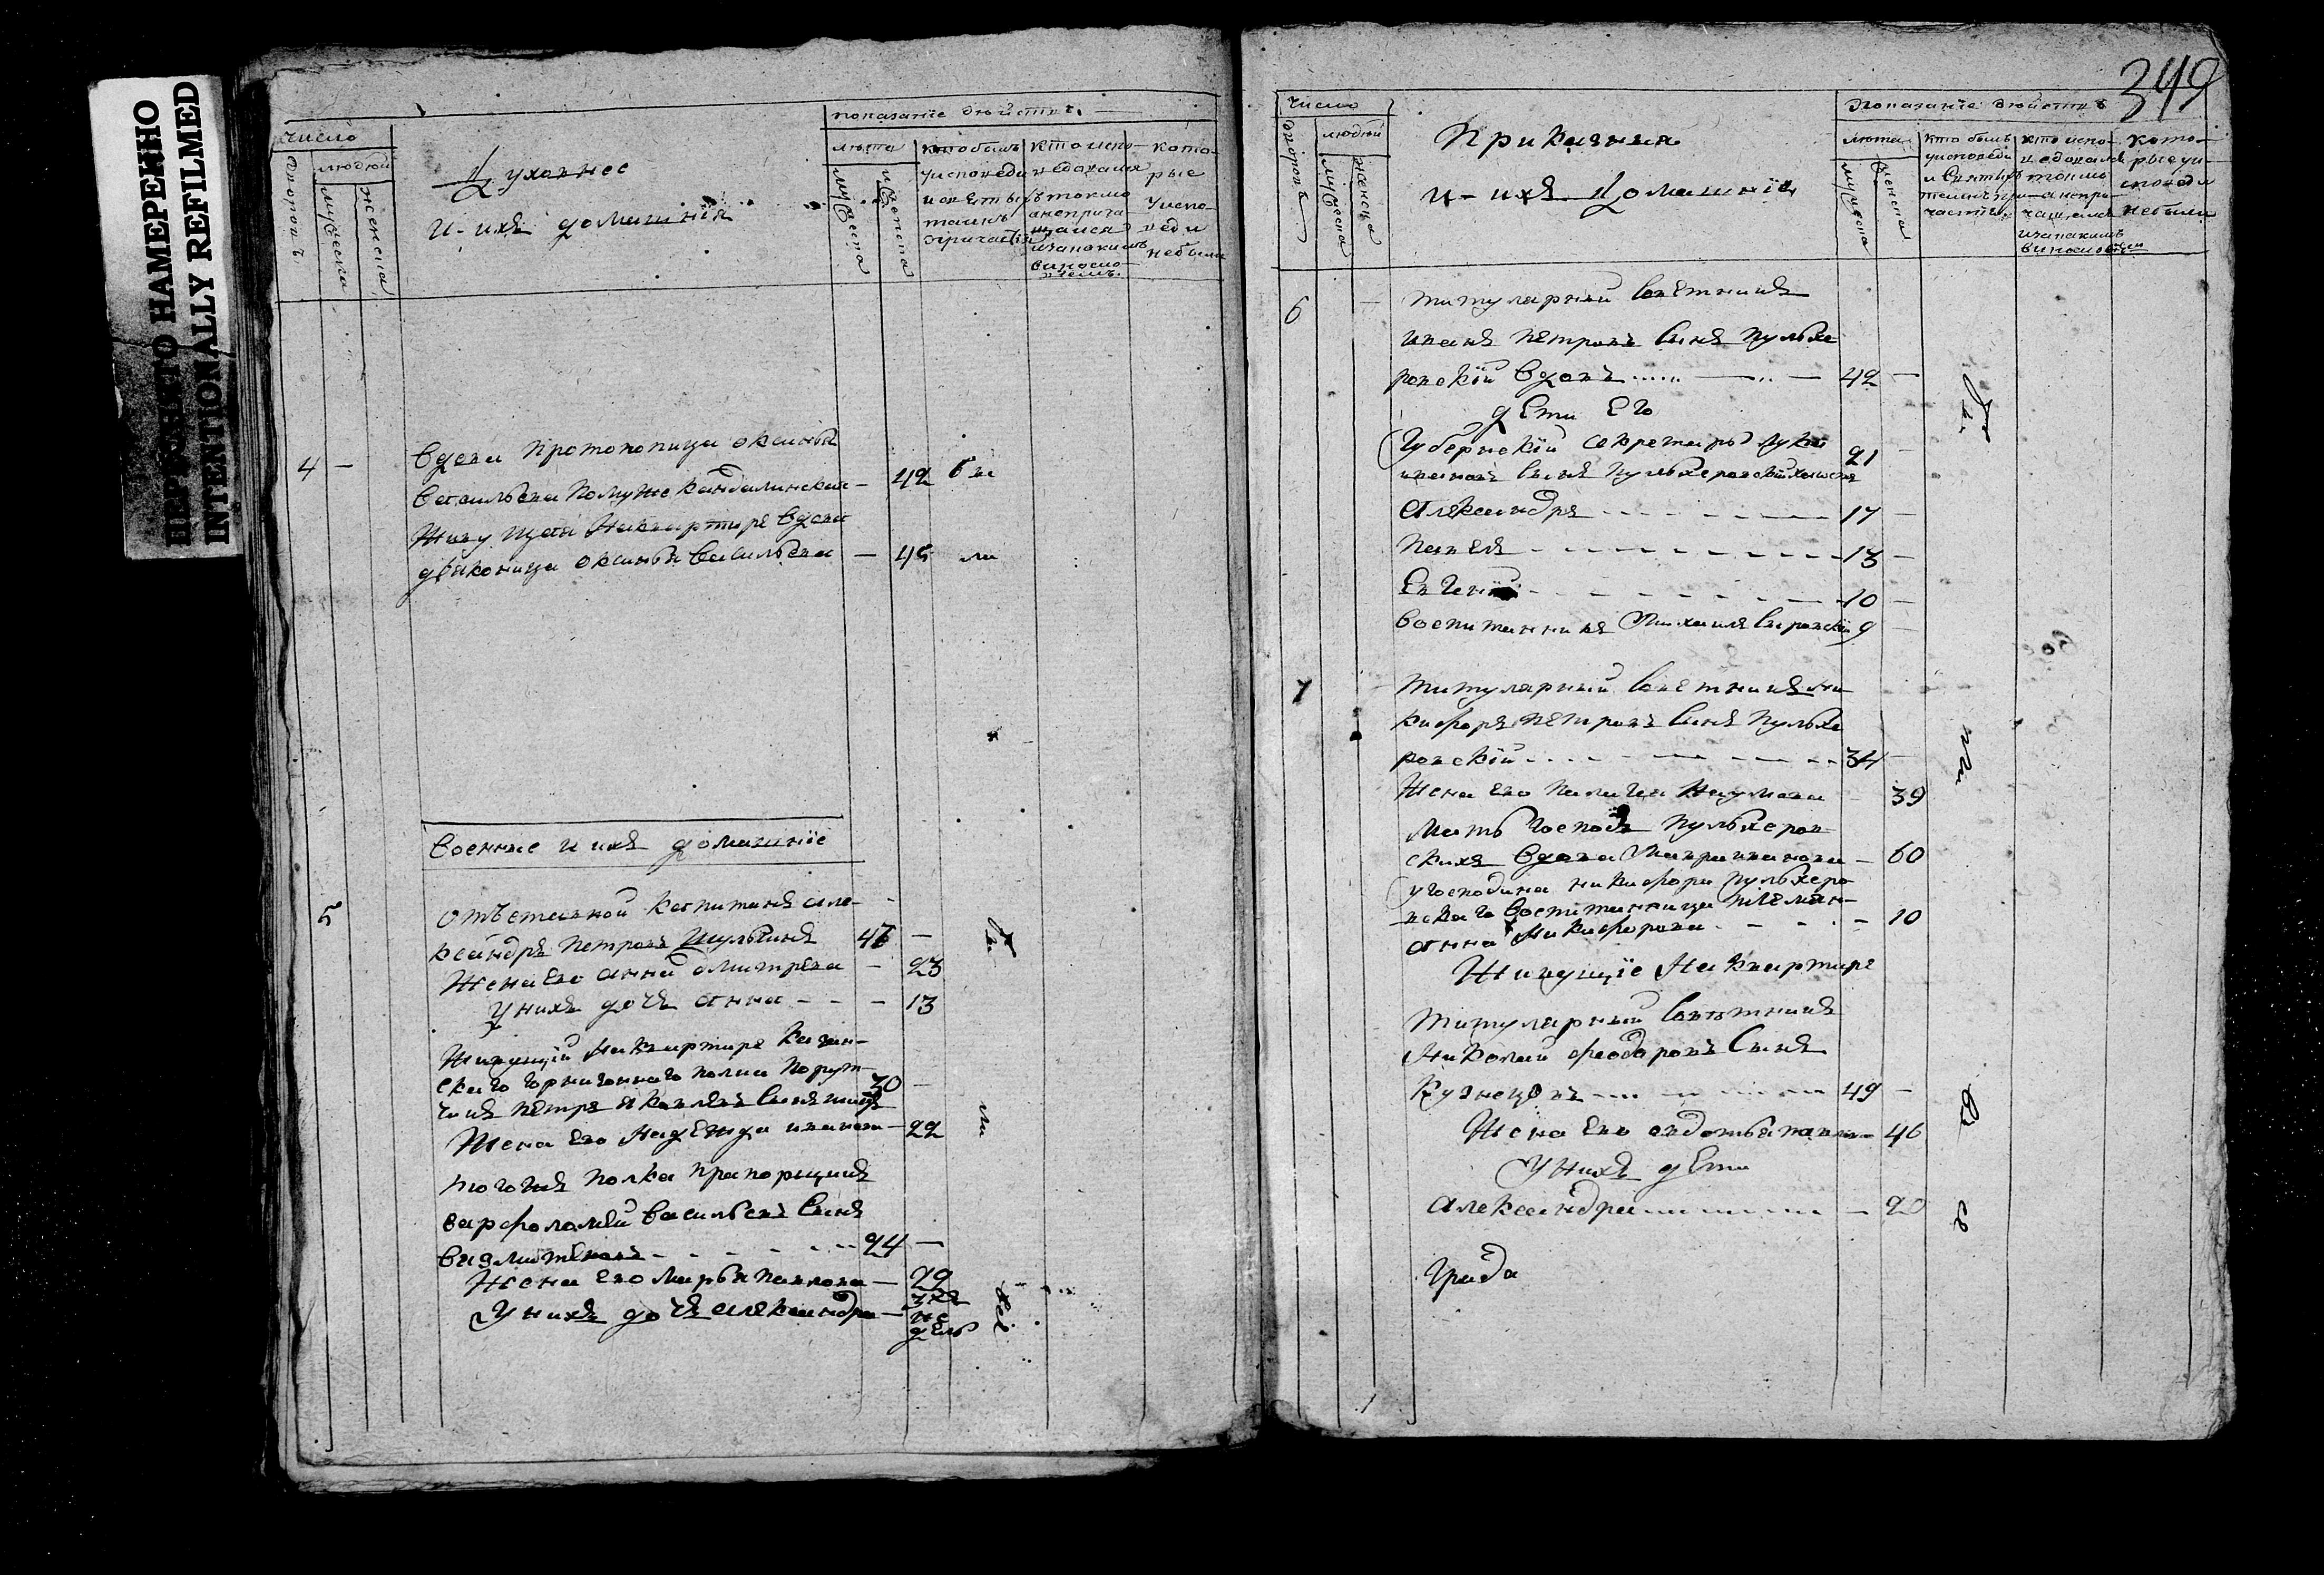 ПЕРЕСНЯТО НАМЕРЕННО
INTENTIONALLY REFILMED
число
дворовъ
людей
мужеска
женска
Духовнес
и-ихъ домашнія
показаніе действъ.
лѣта
мужеска
женска
кто былъ
у исповеди
и святыхъ
таинъ
причастія
кто испо-
ведохался
токмо
а неприча-
щался
и за какимъ
винословіемъ
кото-
рые
у испо-
веди
небыли
4 —
Вдова Протопопица оксинья
Васильева Помуже Кандалинская — 42 бы
Живущая На квартире вдова
дьяконица оксинья Васильева — 45 ли
Военные и ихъ домашніе
5
отъставной капитанъ але-
ксандръ Петровъ сынъ —
Жена его анна дмитрева — 23
у нихъ дочь анна — — — 13
Живущій на квартире Казан-
скаго гарнизоннаго полка Порут-
чикъ Петръ яковлевъ сынъ 30 —
Жена его Надежда иванова — 22
ли
тогожъ полка прапорщикъ
варфоломей васильевъ сынъ
24 —
Жена его Марья павлова — 29
у нихъ дочь александра — 3хъ
не
дель
всѣ
349
число
дворовъ
людей
мужеска
женска
Приказныя
и-ихъ Домашнія
Показаніе действъ
лѣта
мужеска
женска
кто былъ
у исповеди
и святыхъ
таинъ при-
частія
кто испо-
ведохался
токмо
а непри-
чащался
и за какимъ
винословіемъ
кото-
рые у и-
споведи
небыли
6 — титулярный советникъ
иванъ Петровъ сынъ Пульхе
ровскій вдовъ — 42 —
дети его
Губернскій секретарь лука 21 —
ивановъ сынъ Пульхеровскій холостъ
Александръ — 17 —
Павелъ — 13 —
Евгеній — 10 —
воспитанникъ Михаилъ 9 —
бы
7 — титулярный советникъ ни-
кифоръ Петровъ сынъ Пульхе
ровскій — 34 —
Жена его Палагея Наумова — 39
Мать господъ Пульхеров-
скихъ вдова Мавра иванова — 60
у господина никифора Пульхеро-
вскаго воспитанница племян-
анна Никифорова — 10
Живущіе На квартире
Титулярный Советникъ
Николай феодоровъ Сынъ
Кузнецовъ — 49 —
Жена его авдотья — 46
У нихъ дети
александра — 20
Града